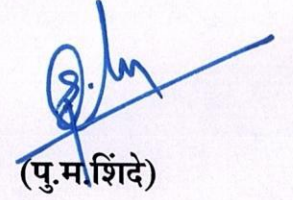 (पु.म.शिंदे)